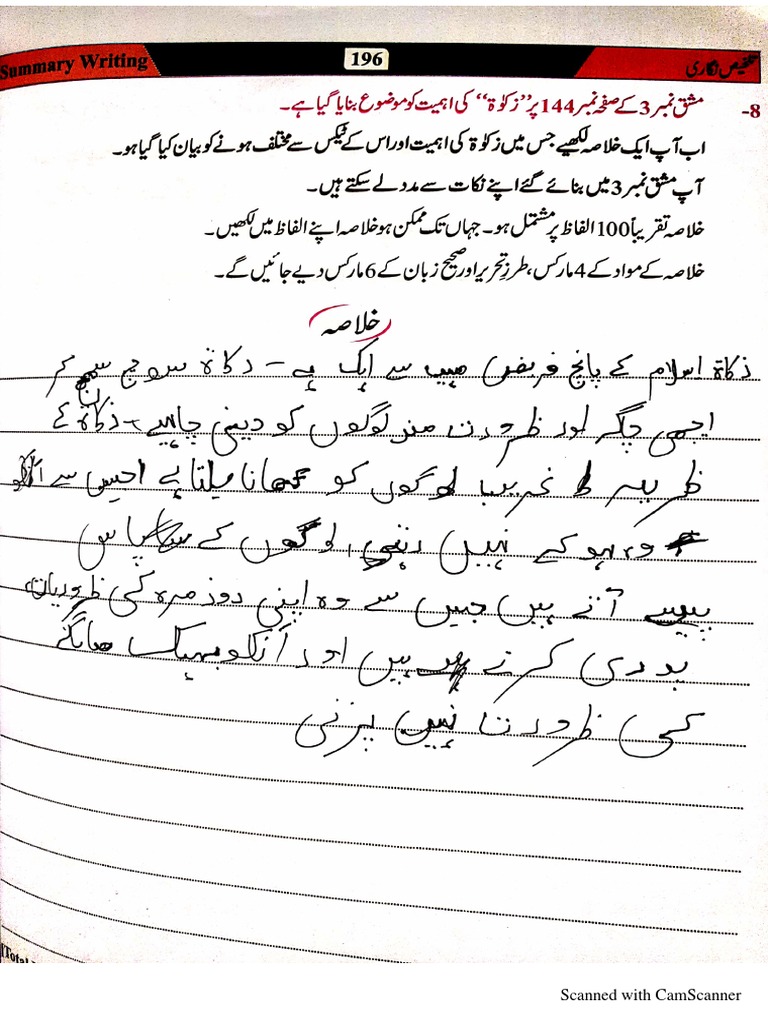 Summary Writing 196 تلخیص نگاری
8- مشق نمبر 3 کے صفحہ نمبر 144 پر ”زکوٰۃ“ کی اہمیت کو موضوع بنایا گیا ہے۔
اب آپ ایک خلاصہ لکھیے جس میں زکوٰۃ کی اہمیت اور اس کے ٹیکس سے مختلف ہونے کو بیان کیا گیا ہو۔
آپ مشق نمبر 3 میں بنائے گئے اپنے نکات سے مدد لے سکتے ہیں۔
خلاصہ تقریباً 100 الفاظ پر مشتمل ہو۔ جہاں تک ممکن ہو خلاصہ اپنے الفاظ میں لکھیں۔
خلاصہ کے مواد کے 4 مارکس، طرزِ تحریر اور صحیح زبان کے 6 مارکس دیے جائیں گے۔
خلاصہ
ذکاۃ اسلام کے پانچ فریض میں سے ایک ہے - ذکاۃ سوچ سمجھ کر
اچھی جگہ اور ظرورت مند لوگوں کو دینی چاہیے - ذکاۃ کے
غریب لوگوں کو کھانا ملتا ہے سے
وہ نہیں لوگوں کے پاس
پیسے آتے ہیں جس سے وہ اپنی روزمرہ کی ظروریات
پوری کرتے ہیں اور انکو بھیک مانگنے
کی ظرورت نہیں پڑتی
[Total
Scanned with CamScanner